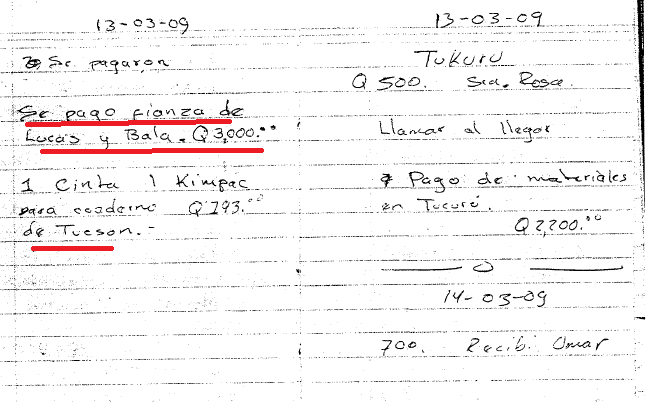 13-03-09
Se pagaron
Se pago fianza de
Lucas y Bala. Q 3,000.00
1 Cinta 1 Kimpac
para cuaderno Q 193.00
de Tucson.-
13-03-09
TUKURU
Q 500. Sra. Rosa.
Llamar al llegar
Pago de materiales
en Tucurú.
Q 2,200.00
14-03-09
700. Recibi Omar